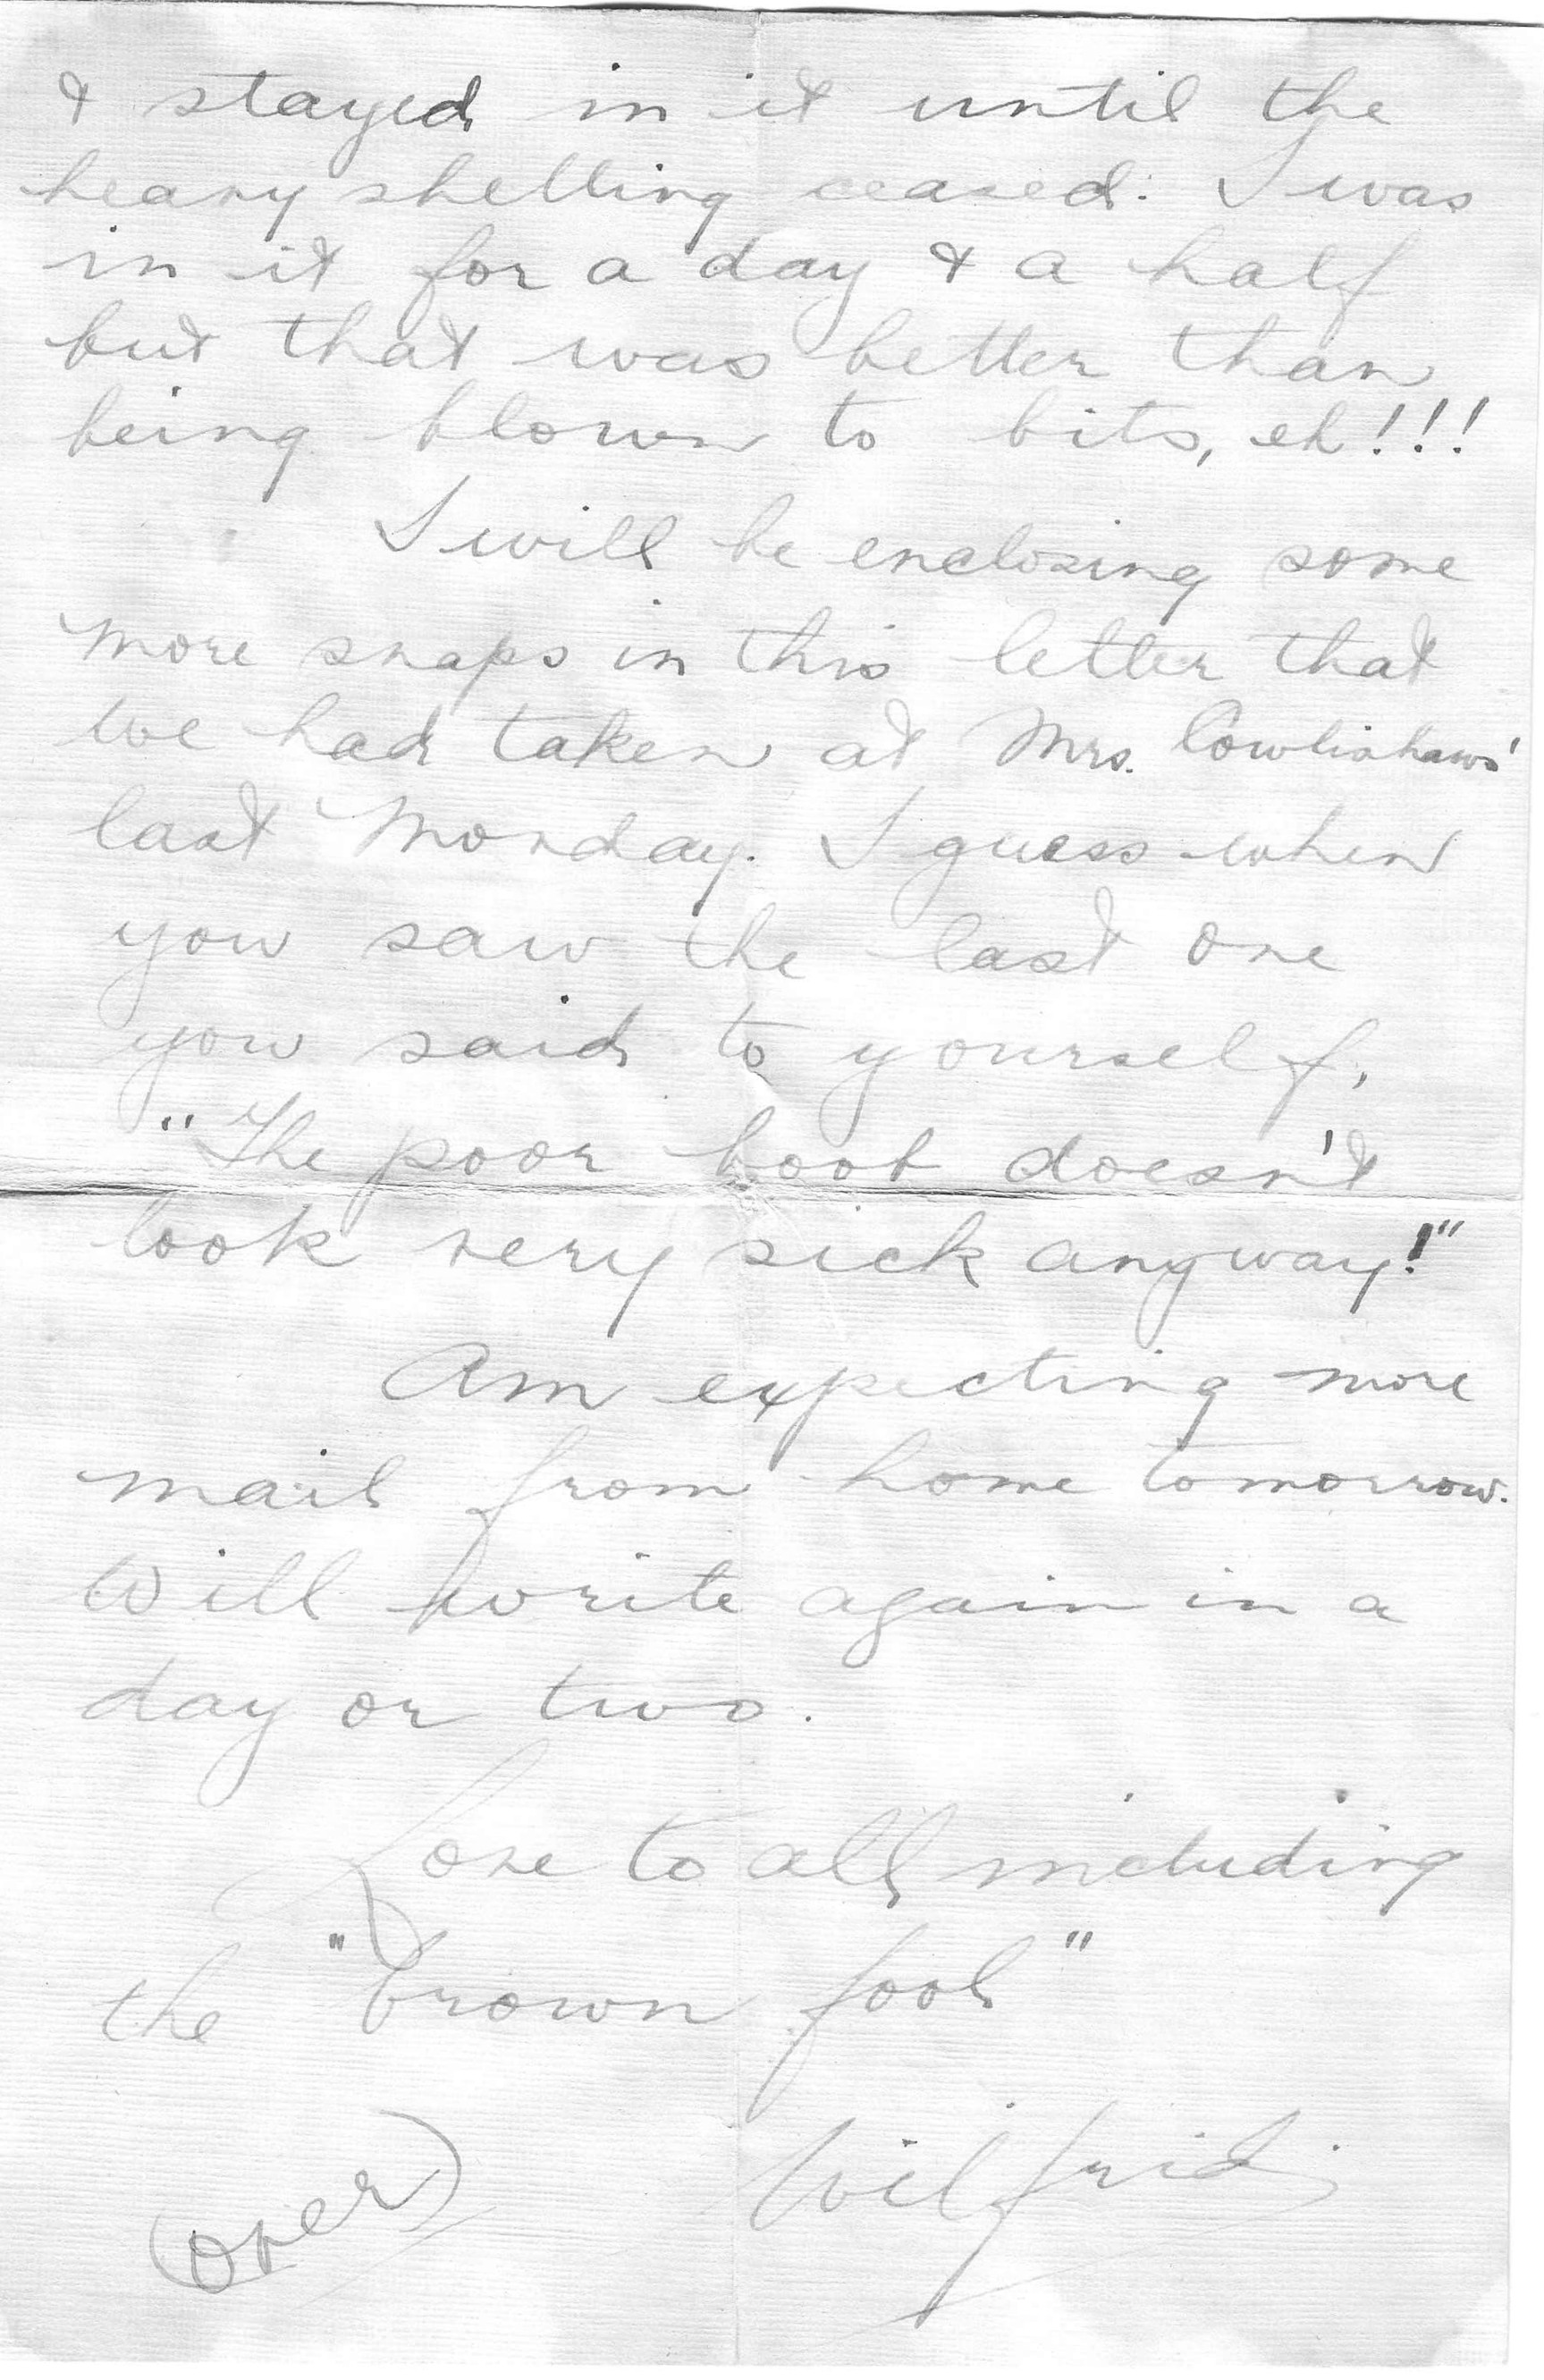 & stayed in it until the
heavy shelling ceased. I was
in it for a day & a half
but that was better than
being blown to bits, eh!!!
I will be enclosing some
more snaps in this letter that
we had taken at Mrs. Cowlishaws'
last Monday. I guess when
you saw the last one
you said to yourself,
"The poor boob doesn't
look very sick anyway!"
Am expecting more
mail from home tomorrow.
Will write again in a
day or two.
Love to all including
the "brown fool"
Wilfrid
(over)